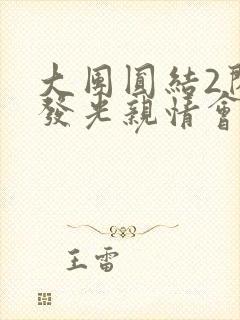 大團圓結2
發光親情會
王雷